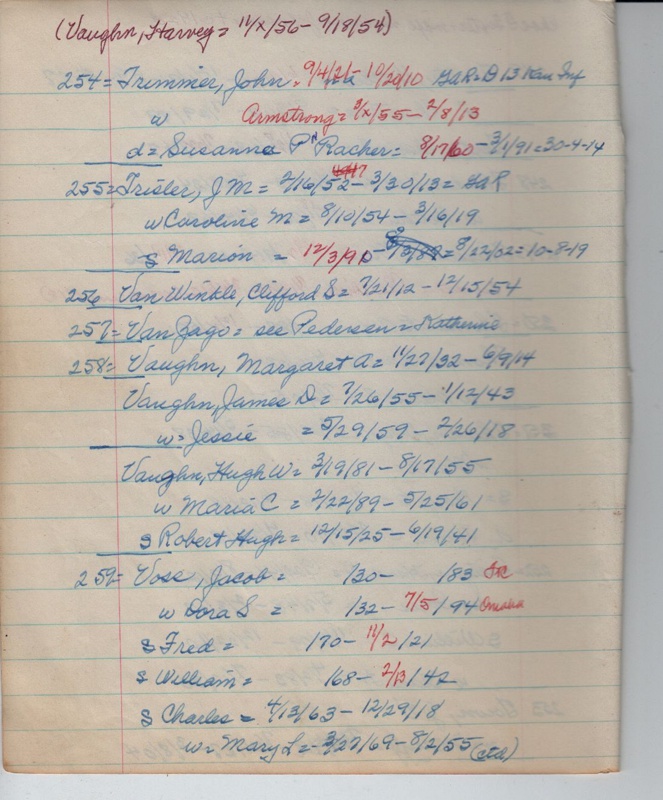 (Vaughn, Harvey = 11/x/56 - 9/18/54)
254 = Trimmer, John = 9/4/21 - 10/20/10 GaR = D 13 Kan Inf
w Armstrong = 9/x/55 - 2/8/13
d = Susanna P N Racher = 8/17/60 - 3/1/91 = 30-4-14
255 = Trisler, J M = 2/16/52 - 3/30/13 = GaR
w Caroline M = 8/10/54 - 3/16/19
s Marion = 12/3/9 = 8/22/02 = 10-8-19
256 Van Winkle, Clifford S = 7/21/12 - 12/15/54
257 = Van Zago = see Pedersen = Katherine
258 = Vaughn, Margaret A = 11/27/32 - 6/9/14
Vaughn, James D = 7/26/55 - 1/12/43
w = Jessie = 5/29/59 - 2/26/18
Vaughn, Hugh W = 3/19/81 - 8/17/55
w Maria C = 2/22/89 - 5/25/61
s Robert Hugh = 12/15/25 - 6/19/41
259 = Voss, Jacob = /30 - /83
w Dora S = /32 - 7/5/94 Omaha
s Fred = /70 - 11/2/21
s William = /68 - 2/13/42
s Charles = 4/13/63 - 12/29/18
w = Mary L = 3/27/69 - 8/2/55